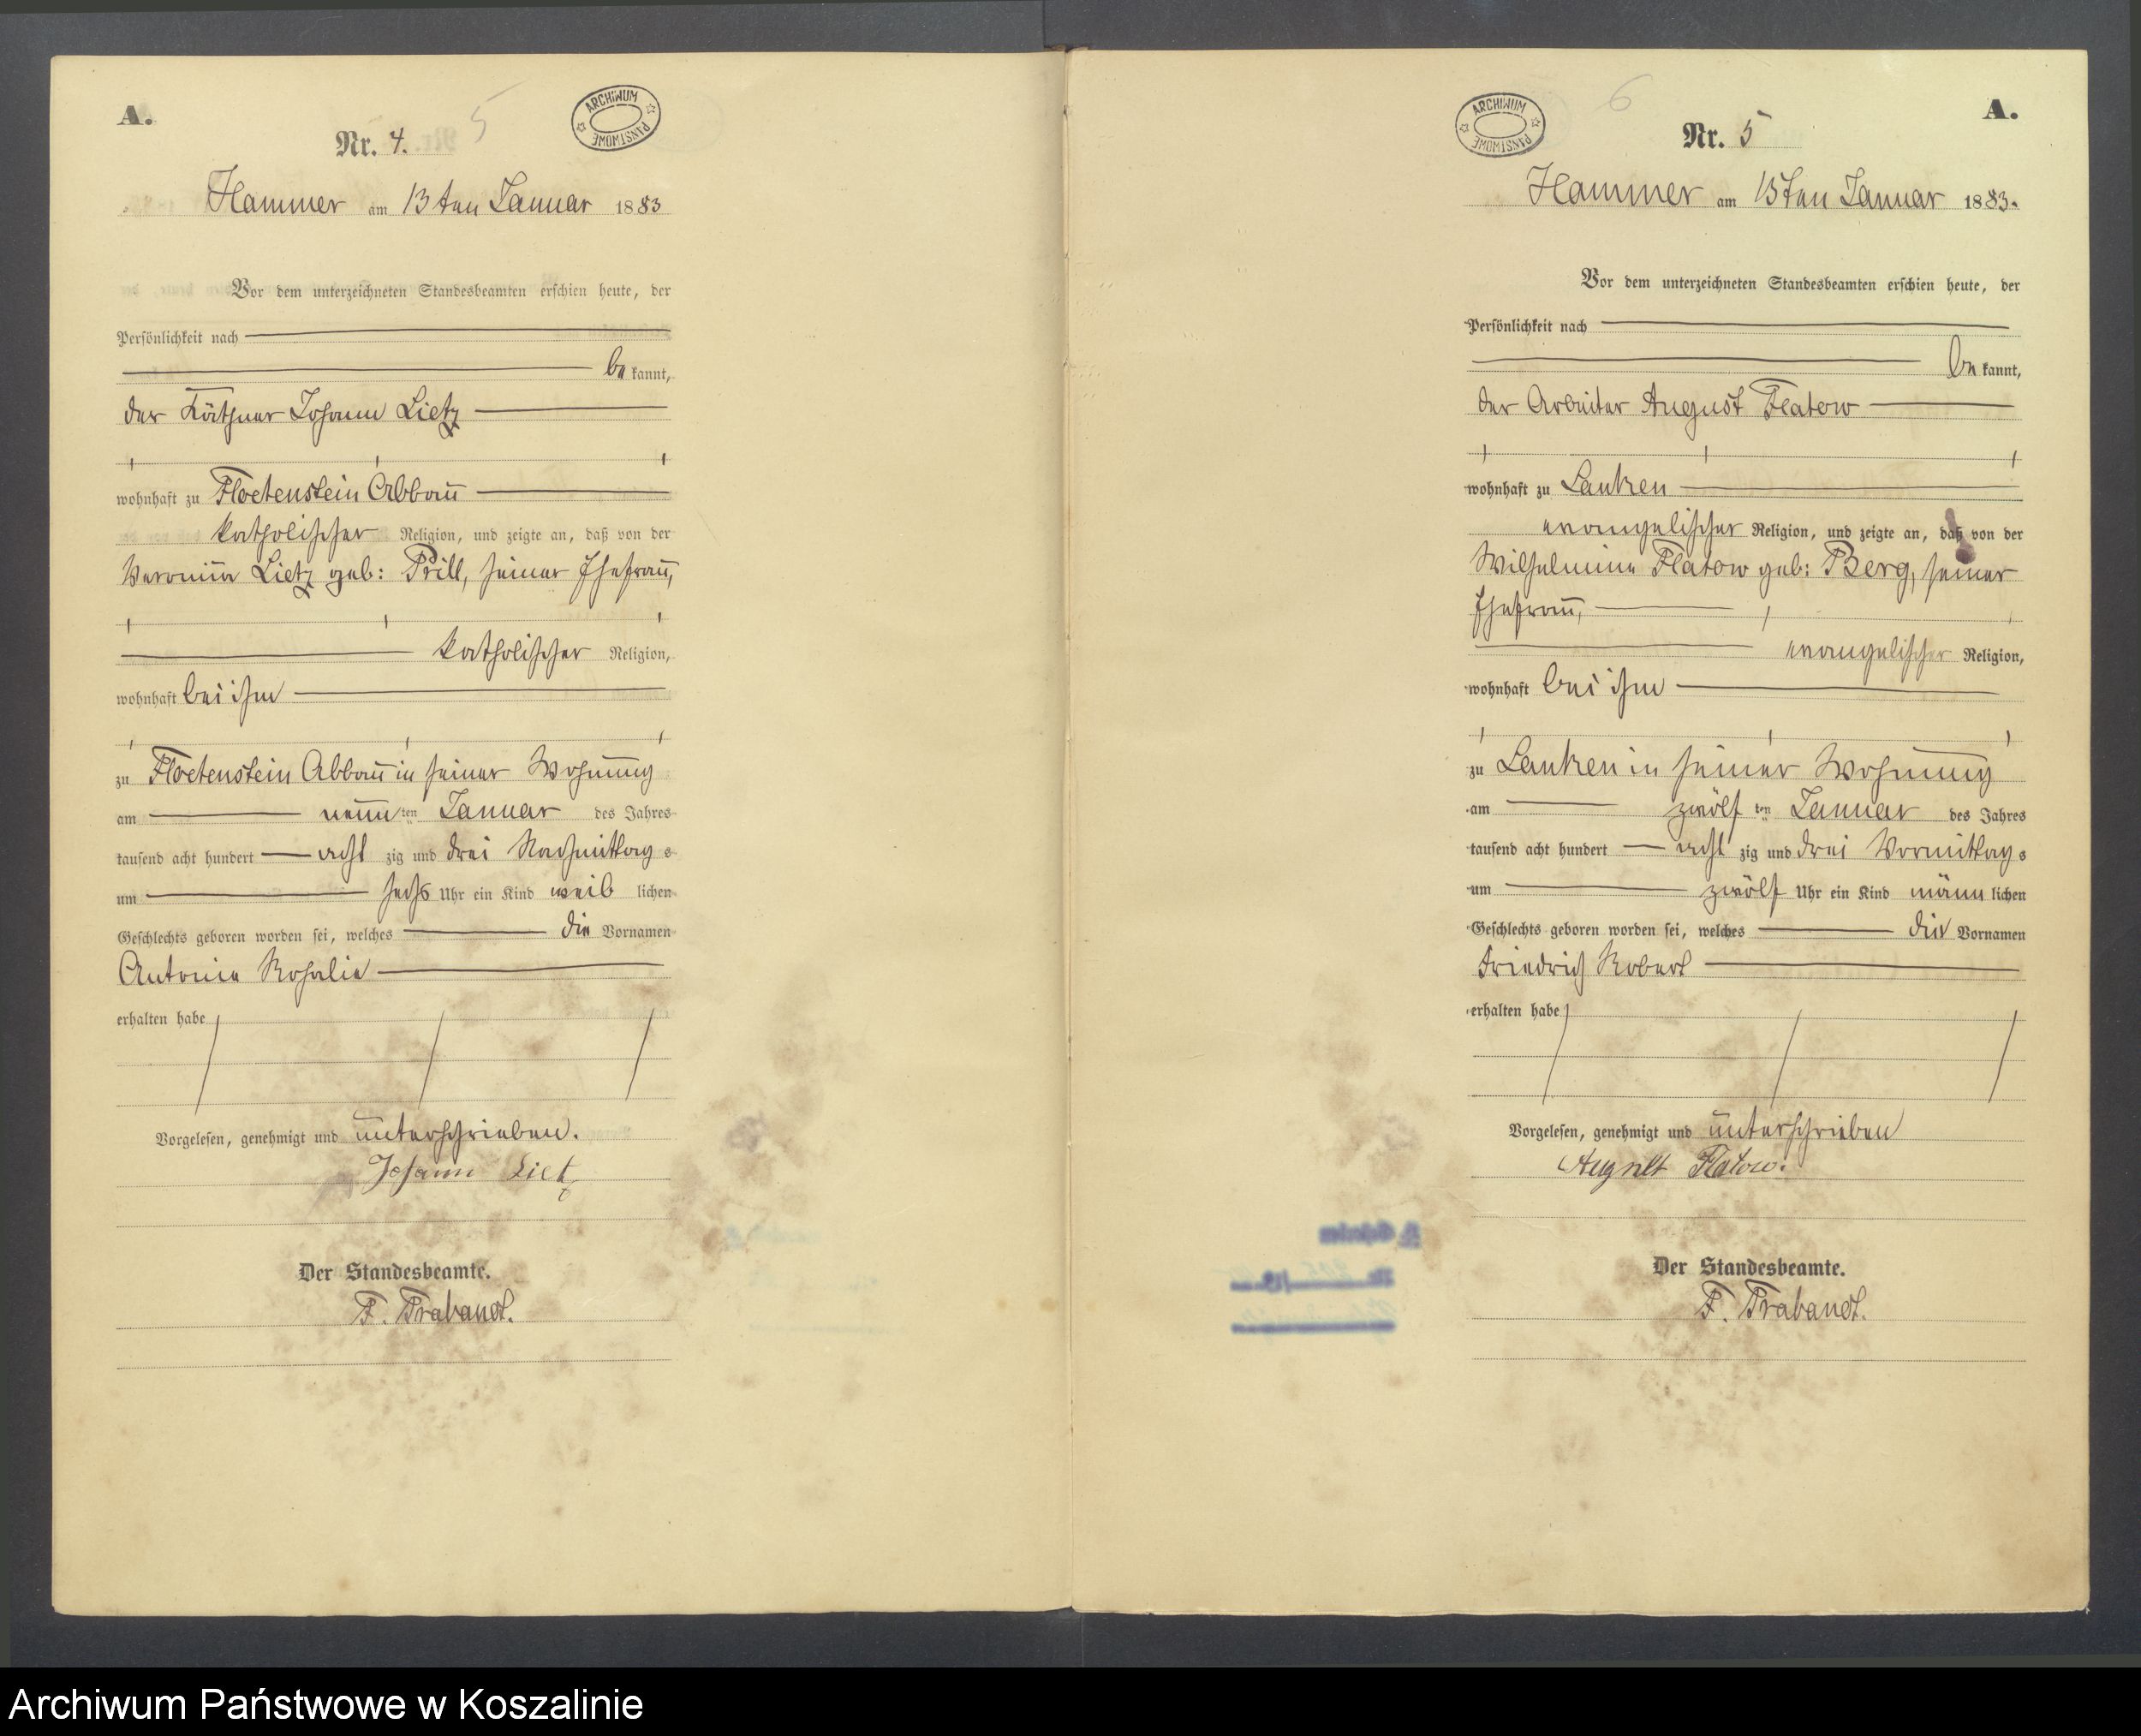 A.
Nr. 4.
5
ARCHIWUM PAŃSTWOWE
Hammer am 13ten Januar 1883
Vor dem unterzeichneten Standesbeamten erschien heute, der
Persönlichkeit nach
bekannt,
der Käthner Johann Lietz
wohnhaft zu Floetenstein Abbau
katholischer Religion, und zeigte an, daß von der
Veronika Lietz geb: Prill, seiner Ehefrau,
katholischer Religion,
wohnhaft bei ihm
zu Floetenstein Abbau in seiner Wohnung
am neunten Januar des Jahres
tausend acht hundert acht zig und drei Nachmittags
um sechs Uhr ein Kind weiblichen
Geschlechts geboren worden sei, welches die Vornamen
Antonie Rosalie
erhalten habe
Vorgelesen, genehmigt und unterschrieben.
Johann Lietz
Der Standesbeamte.
F. Trabandt.
A.
Nr. 5
6
ARCHIWUM PAŃSTWOWE
Hammer am 15ten Januar 1883.
Vor dem unterzeichneten Standesbeamten erschien heute, der
Persönlichkeit nach
bekannt,
der Arbeiter August Flatow
wohnhaft zu Lanken
evangelischer Religion, und zeigte an, daß von der
Wilhelmine Flatow geb: Berg, seiner
Ehefrau,
evangelischer Religion,
wohnhaft bei ihm
zu Lanken in seiner Wohnung
am zwölf ten Januar des Jahres
tausend acht hundert acht zig und drei Vormittags
um zwölf Uhr ein Kind männlichen
Geschlechts geboren worden sei, welches die Vornamen
Friedrich Robert
erhalten habe
Vorgelesen, genehmigt und unterschrieben
August Flatow.
Der Standesbeamte.
F. Trabandt.
Archiwum Państwowe w Koszalinie